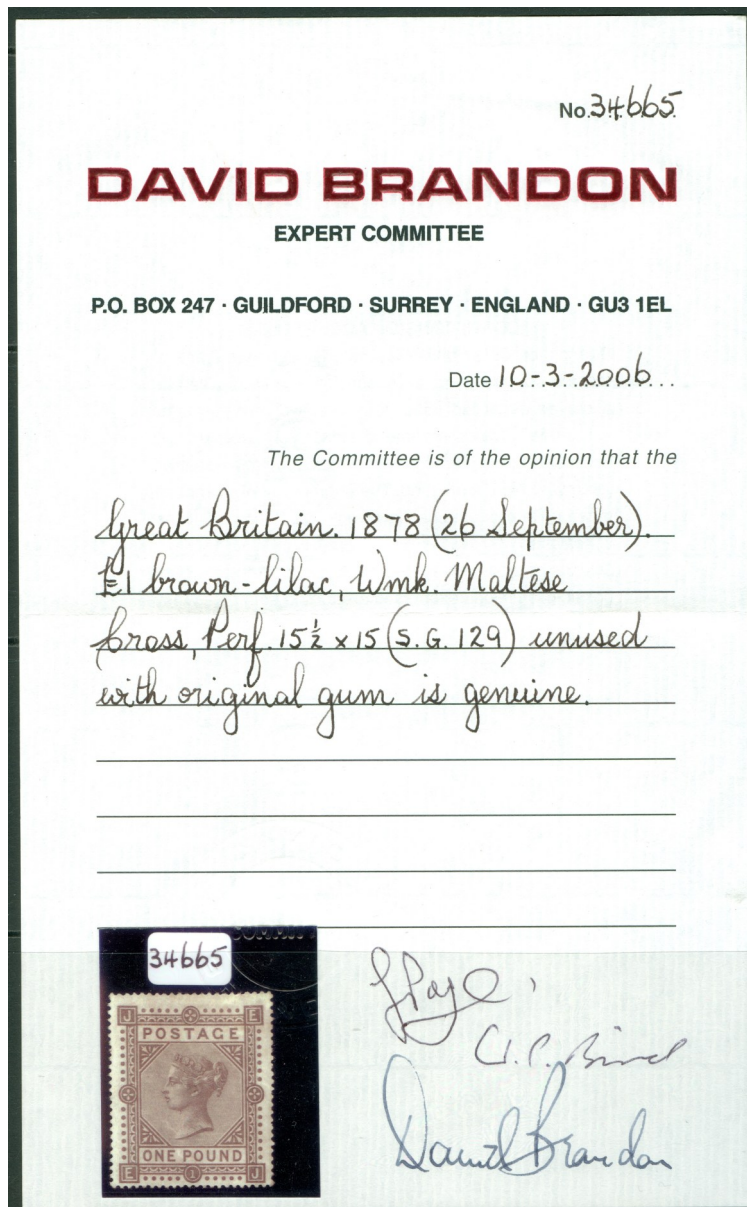 No. 34665
DAVID BRANDON
EXPERT COMMITTEE
P.O. BOX 247 · GUILDFORD · SURREY · ENGLAND · GU3 1EL
Date 10-3-2006
The Committee is of the opinion that the
Great Britain. 1878 (26 September).
£1 brown-lilac, Wmk. Maltese
Cross, Perf. 15½ x 15 (S.G. 129) unused
with original gum is genuine.
34665
J E
POSTAGE
ONE POUND
E 1 J
David Brandon